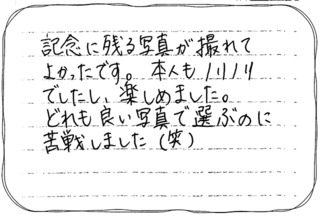 記念に残る写真が撮れて
よかったです。本人もノリノリ
でしたし、楽しめました。
どれも良い写真で選ぶのに
苦戦しました(笑)